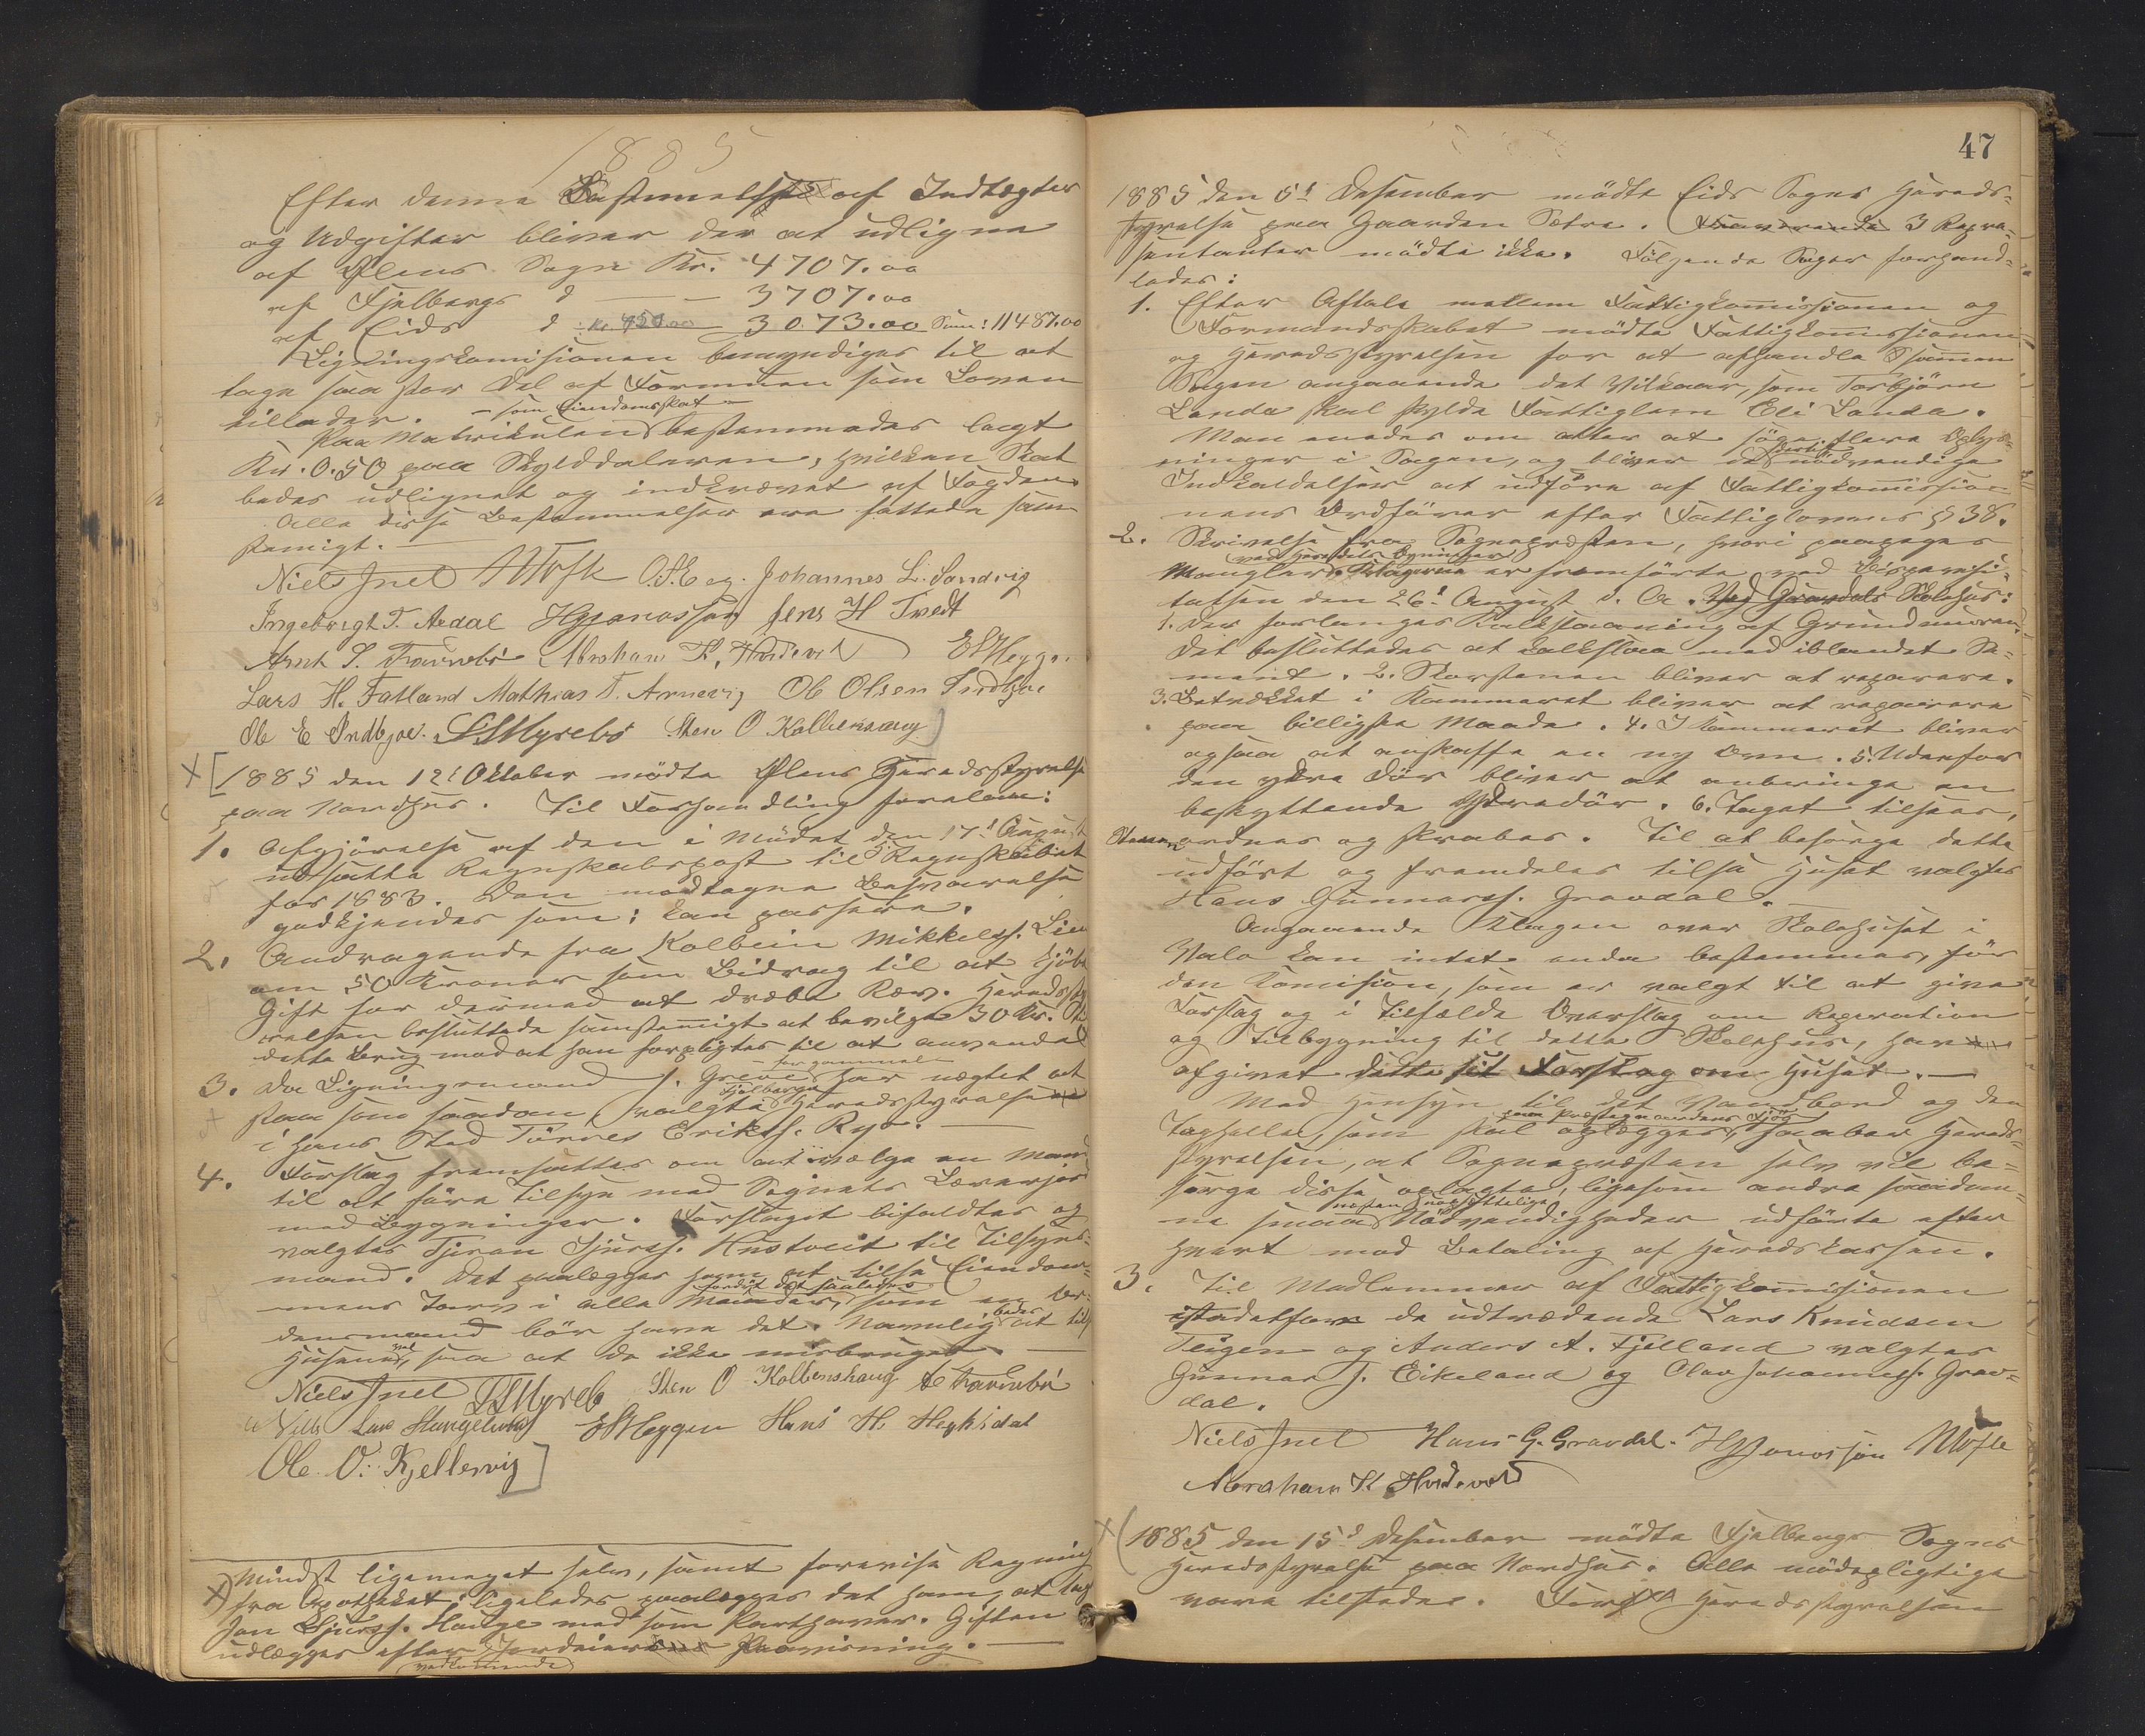 1885
Efter denne Bestemmelse af Indtægter
og Udgifter bliver der at udligne
af Ølens Sogn Kr. 4707.00
af Fjelbergs d — — 3707.00
af Eids d Kr. 450.00 3073.00 Sum: 11487.00
Ligningskomisionen bemyndiges til at
tage saa stor Del af Formuen som Loven
tillader. — som Eiendomsskat —
Paa Matrikulen bestemmedes lagt
Kr. 0.50 paa Skylddaleren, hvilken Skat
bedes udlignet og indkrævet af Fogden.
Alle disse Bestemmelser ere fattede sam-
stemigt. —
Niels Juel O.S. Johannes L. Sandvig
Ingebrigt T. Aedal Jens H Tvedt
Arnt S. Abraham K. E Heggen
Lars H. Fatland Mathias T. Arnevig Ole Olsen Indbjoe
Ole E Indbjoe. Myrebø Sten O Kolbenshaug
[1885 den 12t Oktober mödte Ølens Heredsstyrelse
paa Nordhus. Til Forhandling forelaae:
1. Afgjörelse af den i Mödet den 17d August
udsatte Regnskabspost til Regnskabet
for 1883. Den modtagne Besvarelse
godkjendes som: kan passere.
2. Andragende fra Kolbein Mikkels. Lien
om 50 Kroner som Bidrag til at kjöbe
Gift for dermed at dræbe Ræv. Heredssty-
relsen besluttede samstemigt at bevilge 30 Kr. til
dette Brug mod at han forpligtes til at anvende
3. Da Ligningsmand J. Grevs — for gammel — har nægtet at
staa som saadan, valgte Fjelbergs Heredsstyrelse
i hans Sted Törres Eriks. Rye. —
4. Forslag fremsattes om at vælge en Mand
til at före Tilsyn med Sognets Lærerjord
med Bygninger. Forslaget bifaldtes og
valgtes Sjurs. Tilsyns-
mand. Det paalægges ham at tilse Eiendom-
mens Tarv i alle Maader, som en
densmand bör have det. Navnlig bedes at tilse
Husene vel, saa at de ikke misbruges. —
Niels Juel Myrebø Sten O Kolbenshaug
Lars E Heggen Hans H.
Ole O. Kjellesvig]
mindst ligemeget selv, samt forevise Regning
fra Apotheket: ligeledes paalægges det ham, at tage
Jon Sjurs. Hauge med som Parthaver. Giften
udlægges efter vedkommende Jordeiers Paavisning. —
47
1885 den 5t Desember mödte Eids Sogns Hereds-
styrelse paa Gaarden Sætre. 3 Repre-
sentanter mödte ikke. Fölgende Sager forhand-
ledes:
1. Efter Aftale mellem Fattigkomissionen og
Formandsskabet mödte Fattigkomissionen
og Heredsstyrelsen for at afhandle sammen
Sagen angaaende det Vilkaar, som Torbjörn
Landa skal skylde Fattiglem Eli Landa.
Man enedes om atter at söge flere Oplys-
ninger i Sagen, og bliver de dertil nödvendige
Indkaldelser at udföre af Fattigkomission-
nens Ordförer efter Fattiglovens § 38.
2. Skrivelse fra Sognepræsten, hvori paapeges
Mangler ved Heredets Bygninger er fremförte ved Bispevisi-
tatsen den 26d August d. A. Ved Gravdals Skolehus:
1. Der forlanges Kalkslaaning af Grundmuren.
Det besluttedes at kalkslaa med iblandet Se-
ment. 2. Skorstenen bliver at reparere.
3. Betrækket i Kammeret bliver at reparere
paa billigste Maade. 4. I Kammeret bliver
ogsaa at anskaffe en ny Ovn. 5. Udenfor
den ydre Dör bliver at anbringe en
beskyttende Ydredör. 6. Taget tilsees,
ordnes og skrabes. Til at besörge dette
udfört og fremdeles tilse Huset valgtes
Hans Gunnars. Gravdal. —
Angaaende Klagen over Skolehuset i
Vale kan intet endu bestemmes, för
den Komision, som er valgt til at give
Forslag og i Tilfælde Overslag om Reperation
og Tilbygning til dette Skolehus, har
afgivet dette sit Forslag om Huset. —
Med Hensyn til det Vandbord og den
Taghelle, som skal oplægges, paa Præstegaardens Fjös haaber Hereds-
styrelsen, at Sognepræsten selv vil be-
sörge disse oplagte, ligesom andre saadan-
ne smaa næsten Nödvendigheder udförte efter
hvert mod Betaling af Heredskassen.
3. Til Medlemmer af Fattigkomisionen
istedetfor de udtrædende Lars Knudsen
Teigen og Anders A. Fjelland valgtes
Gunnar J. Eikeland og Olav Johanness. Grav-
dal.
Niels Juel Hans G. Gravdal.
Abraham K
(1885 den 15d Desember mödte Fjelbergs Sogns
Heredsstyrelse paa Nordhus. Alle mödepligtige
vare tilstede. Heredsstyrelsen